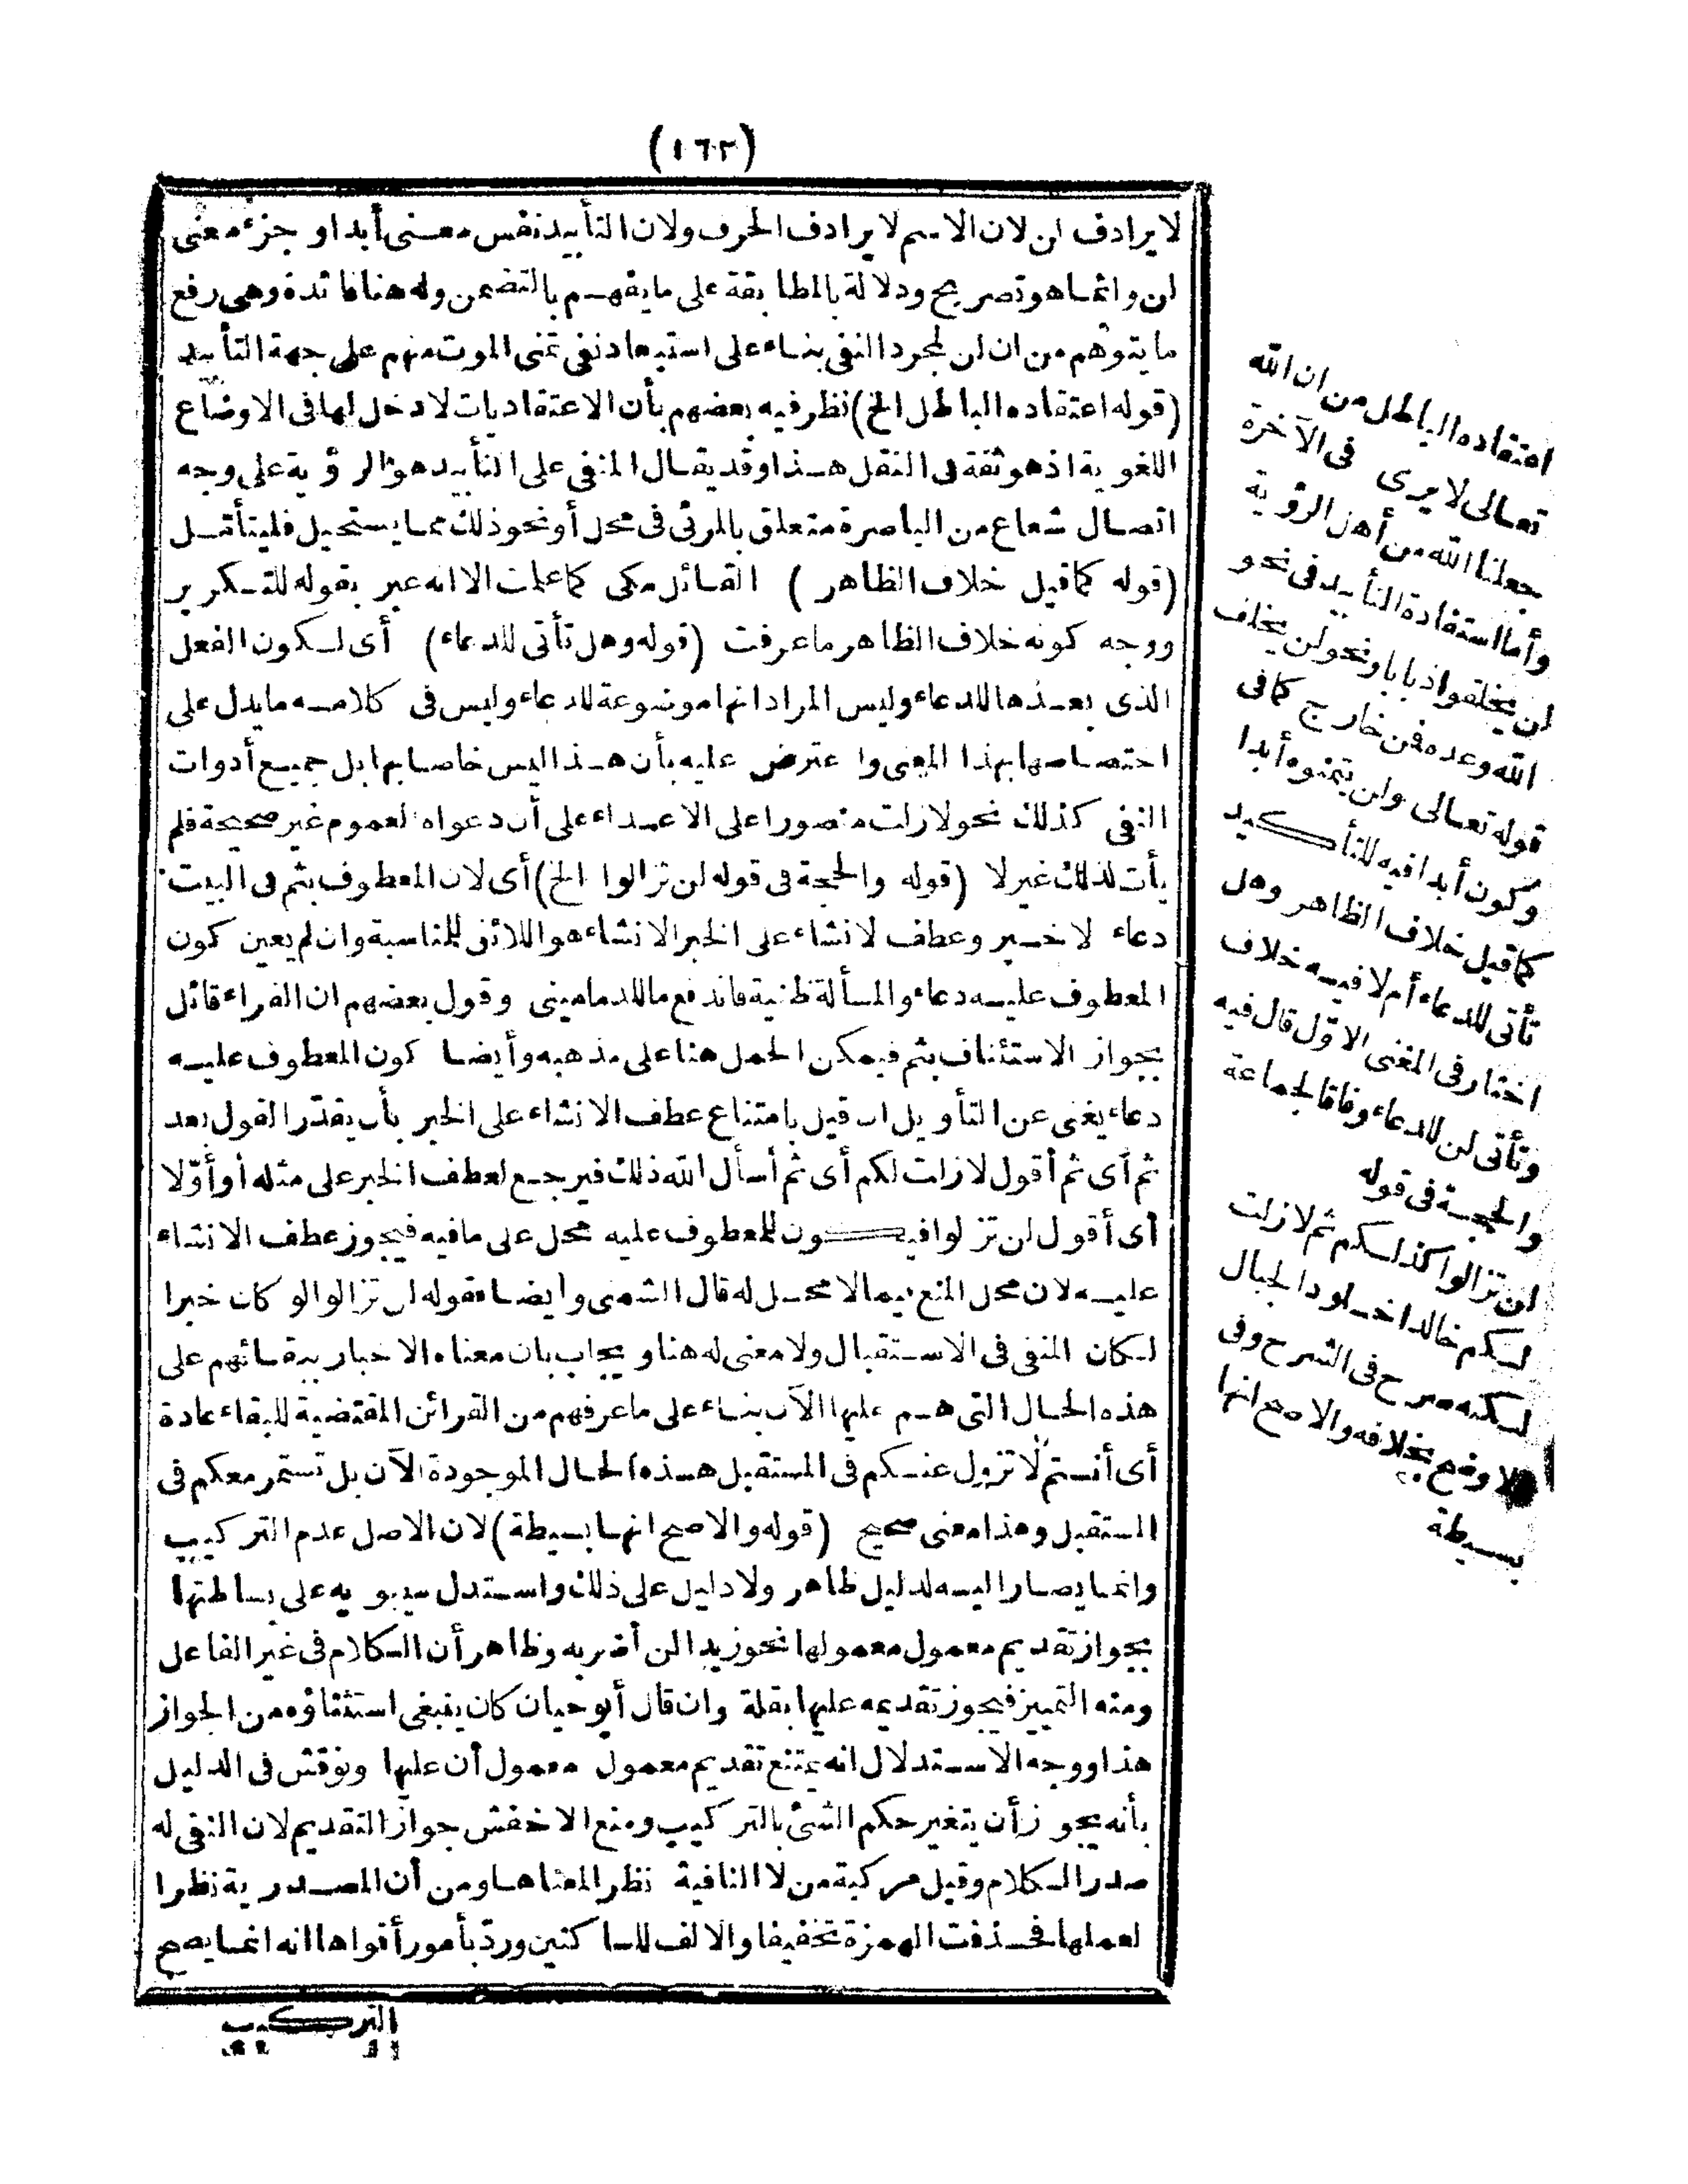 (١٦٢)
لا يرادف لن لان الاسم لا يرادف الحرف ولان التأبيد نفس معنى أبدا وجزء معنى
لن وانما هو تصريح ودلالة بالمطابقة على ما يفهم بالتضمن وله هنا فائدة وهى رفع
ما يتوهم من ان لن لمجرد النفى بناء على استبعاد نفى تمنى الموت منهم على جهة التأبيد
(قوله اعتقاده الباطل الخ) نظر فيه بعضهم بأن الاعتقاديات لا دخل لها فى الاوضاع
اللغوية اذ هو ثقة فى النقل هذا وقد يقال المنفى على التأبيد هو الرؤية على وجه
اتصال شعاع من الباصرة متعلق بالمرئى فى محل أو نحو ذلك مما يستحيل فليتأمل
(قوله كما قيل خلاف الظاهر) القائل مكى كما علمت الا انه عبر بقوله للتكرير
ووجه كونه خلاف الظاهر ما عرفت (قوله وهل تأتى للدعاء) أى لكون الفعل
الذى بعدها للدعاء وليس المراد انها موضوعة للدعاء وليس فى كلامه ما يدل على
اختصاصها بهذا المعنى واعترض عليه بأن هذا ليس خاصا بها بل جميع أدوات
النفى كذلك نحو لازلت منصورا على الاعداء على أن دعواه لعموم غير صحيحة فلم
يأت لذلك غير لا (قوله والحجة فى قوله لن تزالوا الخ) أى لان المعطوف بثم فى البيت
دعاء لا خبر وعطف لانشاء على الخبر الانشاء هو اللائق للمناسبة وان لم يعين كون
المعطوف عليه دعاء والمسألة ظنية فاندفع ما للدمامينى وقول بعضهم ان الفراء قائل
بجواز الاستئناف بثم فيمكن الحمل هنا على مذهبه وأيضا كون المعطوف عليه
دعاء يغنى عن التأويل ان قيل بامتناع عطف الانشاء على الخبر بأن يقدّر القول بعد
ثم أى ثم أقول لازلت لكم أى ثم أسأل الله ذلك فيرجع لعطف الخبر على مثله أو أوّلا
أى أقول لن تزالوا فيكون للمعطوف عليه محل على مافيه فيجوز عطف الانشاء
عليه لان محل المنع فيما لا محل له قال الشمنى وأيضا فقوله لن تزالوا لو كان خبرا
لكان المنفى فى الاستقبال ولا معنى له هنا ويجاب بان معناه الاخبار ببقائهم على
هذه الحال التى هم عليها الآن بناء على ما عرفهم من القرائن المقتضية للبقاء عادة
أى أنتم لا تزول عنكم فى المستقبل هذه الحال الموجودة الآن بل تستمر معكم فى
المستقبل وهذا معنى صحيح (قوله والاصح انها بسيطة) لان الاصل عدم التركيب
وانما يصار اليه لدليل ظاهر ولا دليل على ذلك واستدل سيبويه على بساطتها
بجواز تقديم معمول معمولها نحو زيدا لن أضربه وظاهر أن الكلام فى غير الفاعل
ومنه التمييز فيجوز تقديمه عليها بقلة وان قال أبو حيان كان ينبغى استثناؤه من الجواز
هذا ووجه الاستدلال انه يمتنع تقديم معمول معمول أن عليها ونوقش فى الدليل
بأنه يجوز أن يتغير حكم الشئ بالتركيب ومنع الاخفش جواز التقديم لان النفى له
صدر الكلام وقيل مركبة من لا النافية نظرا لمعناها ومن أن المصدرية نظرا
لعملها فحذفت الهمزة تخفيفا والالف للساكنين وردّ بأمور أقواها انه انما يصح
التركيب
اعتقاده الباطل من ان الله
تعالى لا يرى فى الآخرة
جعلنا الله من أهل الرؤية
وأما استفادة التأبيد فى نحو
لن يخلقوا ذبابا ونحو لن يخلف
الله وعده فمن خارج كما فى
قوله تعالى ولن يتمنوه أبدا
وكون أبدا فيه للتأكيد
كما قيل خلاف الظاهر وهل
تأتى للدعاء أم لا فيه خلاف
اختار فى المغنى الاوّل قال فيه
وتأتى لن للدعاء وفاقا لجماعة
والحجة فى قوله
لن تزالوا كذلكم ثم لا زلت
لكم خالدا خلود الجبال
لكنه صرح فى الشرح وفى
الاوضح بخلافه والاصح انها
بسيطة